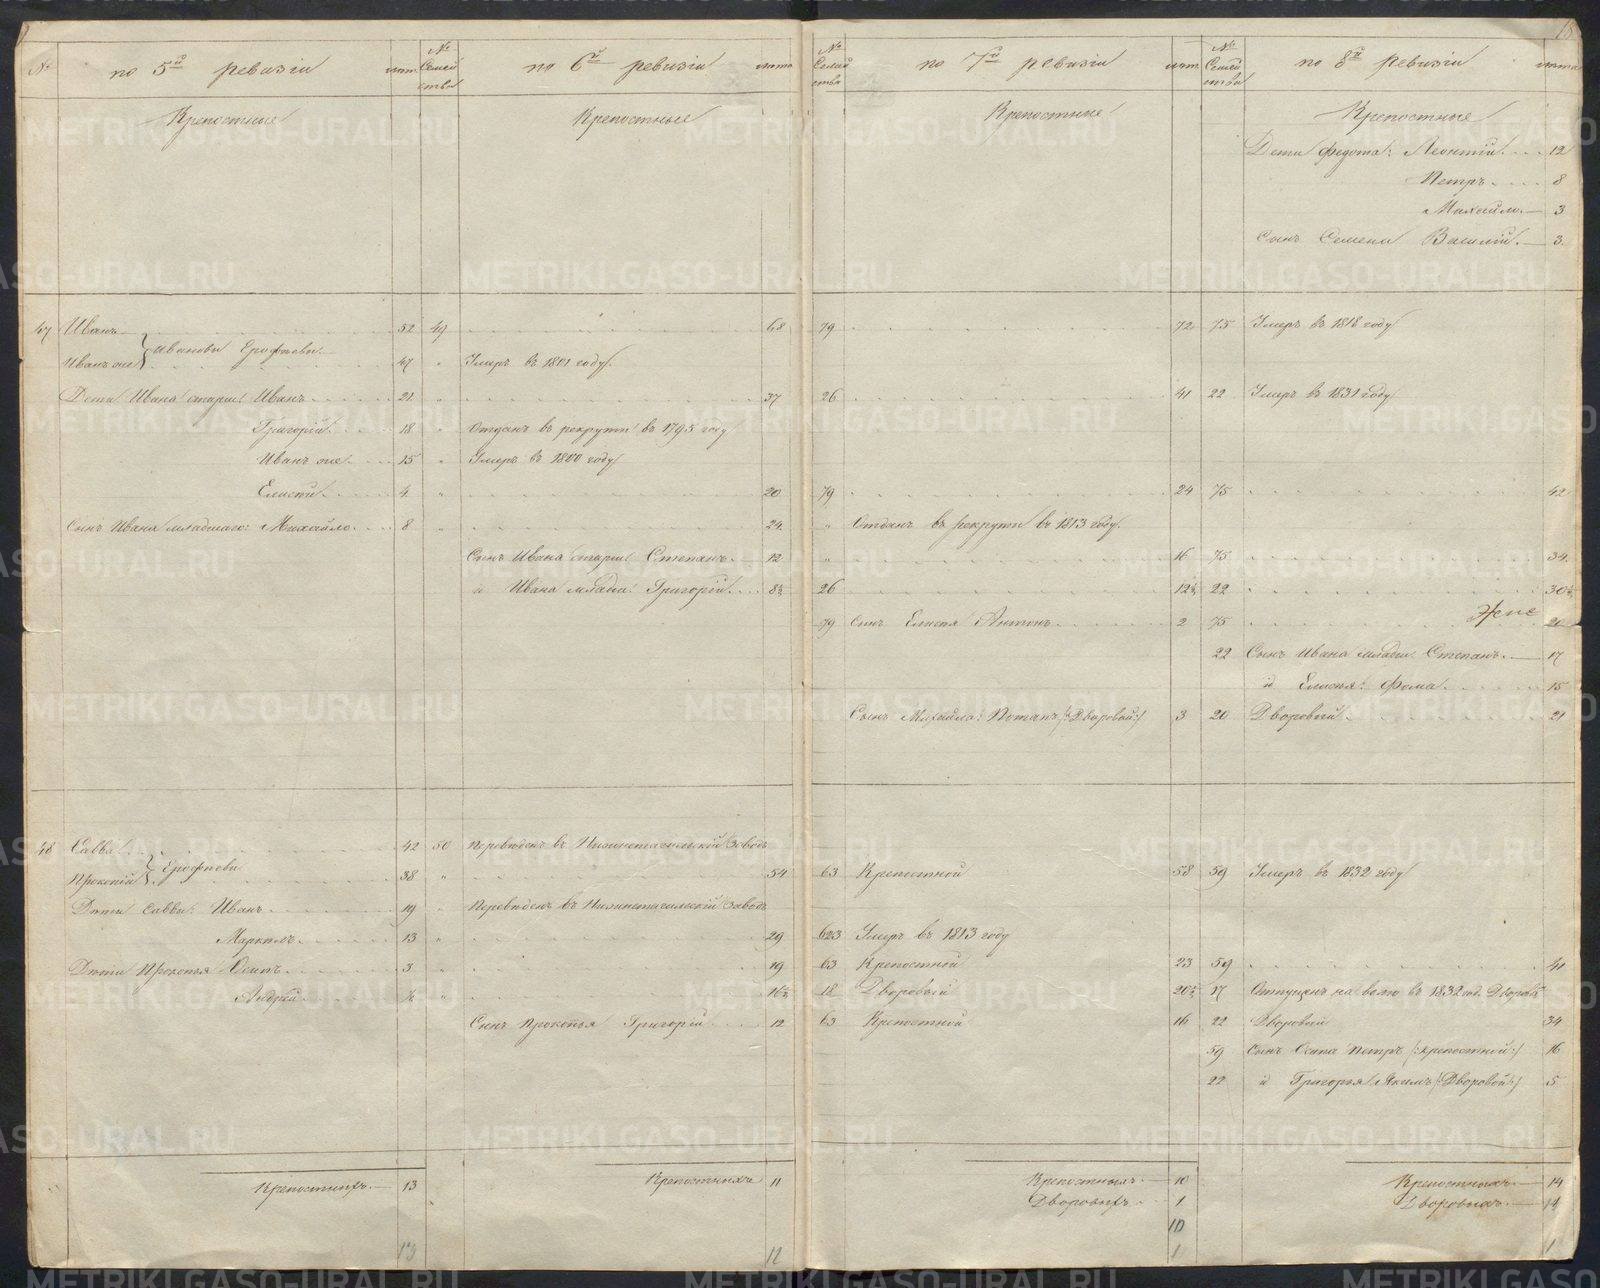 № по 5й ревизiи лѣта № Семей ства по 6й ревизiи лѣта № Семей ства по 7й ревизiи лѣта № Семей ства по 8й ревизiи лѣта
Крѣпостные Крѣпостные Крѣпостные Крѣпостные
Дѣти Федота: Леонтiй 12
Петръ 8
Михайло 3
Сынъ Семена Василiй 3
47 Иванъ 52 49 68 79 72 75 Умеръ въ 1818 году
Иванъ же } Ивановы Ерофѣевы 47 „ Умеръ въ 1801 году
Дѣти Ивана старш: Иванъ 21 „ 37 26 41 22 Умеръ въ 1831 году
Григорiй 18 „ Отданъ въ рекруты въ 1795 году
Иванъ же 15 „ Умеръ въ 1800 году
Елисѣй 4 „ 20 79 24 75 42
Сынъ Ивана младшаго: Михайло 8 „ 24 „ Отданъ въ рекруты въ 1813 году.
Сынъ Ивана старш: Степанъ 12 „ 16 75 34
и Ивана младш: Григорiй 8½ 26 12½ 22 30½
79 Сынъ Елисѣя Антонъ 2 75 20
22 Сынъ Ивана младш: Степанъ 17
и Елисѣя: Фома 15
Сынъ Михайла: Потапъ /:Дворовой:/ 3 20 Дворовый 21
48 Савва 42 50 Переведенъ въ Нижнетагильскiй Заводъ
Прокопiй } Ерофѣевы 38 „ 54 63 Крѣпостной 58 59 Умеръ въ 1832 году
Дѣти Саввы: Иванъ 19 „ Переведенъ въ Нижнетагильскiй Заводъ
13 „ 29 623 Умеръ въ 1813 году
Дѣти Прокопья Осипъ 3 „ 19 63 Крѣпостной 23 59 41
Андрей ½ „ 16½ 18 Дворовый 20½ 17 Отпущенъ на волю въ 1832 год. Дворовый
Сынъ Прокопья Григорiй 12 63 Крѣпостной 16 22 Дворовый 34
59 Сынъ Осипа Петръ /:крѣпостной:/ 16
22 и Григорья Якимъ /:Дворовой:/ 5
Крѣпостныхъ 13 Крѣпостныхъ 11 Крѣпостныхъ 10 Крѣпостныхъ 14
Дворовыхъ 1 Дворовыхъ
10
13 12 1 1
METRIKI.GASO-URAL.RU